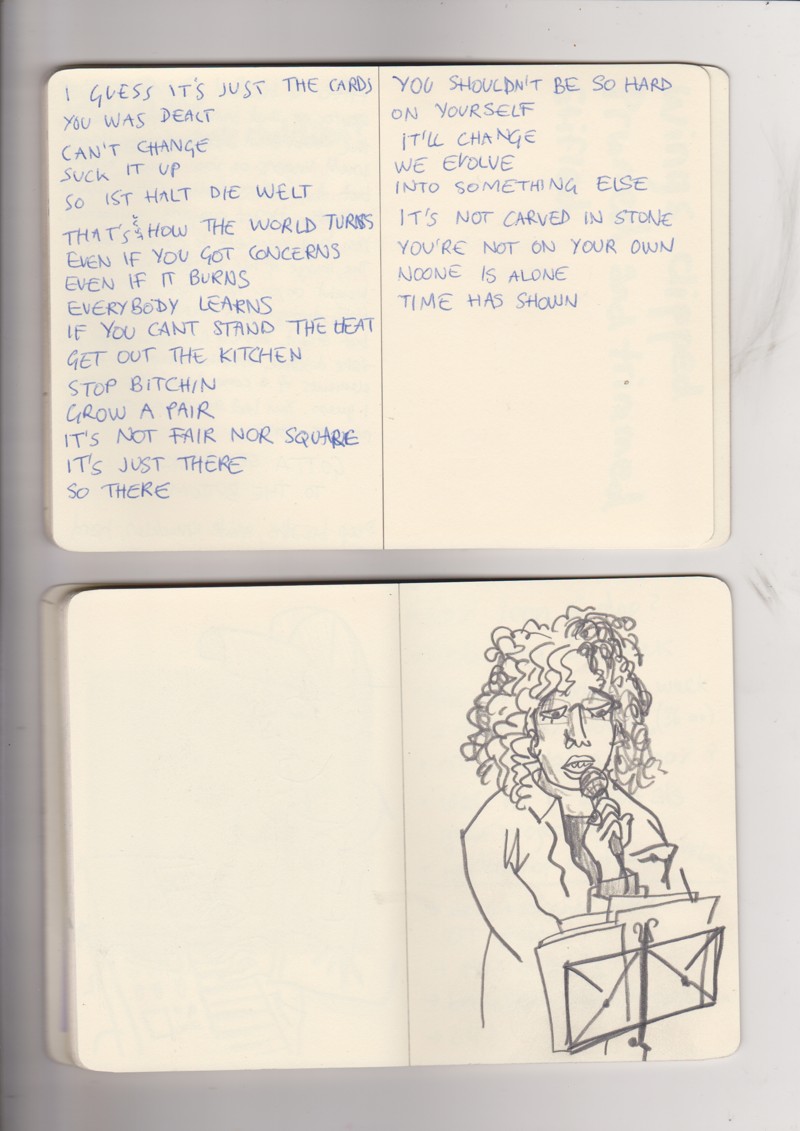 I GUESS IT'S JUST THE CARDS
YOU WAS DEALT
CAN'T CHANGE
SUCK IT UP
SO IST HALT DIE WELT
THAT'S HOW THE WORLD TURNS
EVEN IF YOU GOT CONCERNS
EVEN IF IT BURNS
EVERYBODY LEARNS
IF YOU CANT STAND THE HEAT
GET OUT THE KITCHEN
STOP BITCHIN
GROW A PAIR
IT'S NOT FAIR NOR SQUARE
IT'S JUST THERE
SO THERE
YOU SHOULDN'T BE SO HARD
ON YOURSELF
IT'LL CHANGE
WE EVOLVE
INTO SOMETHING ELSE
IT'S NOT CARVED IN STONE
YOU'RE NOT ON YOUR OWN
NOONE IS ALONE
TIME HAS SHOWN